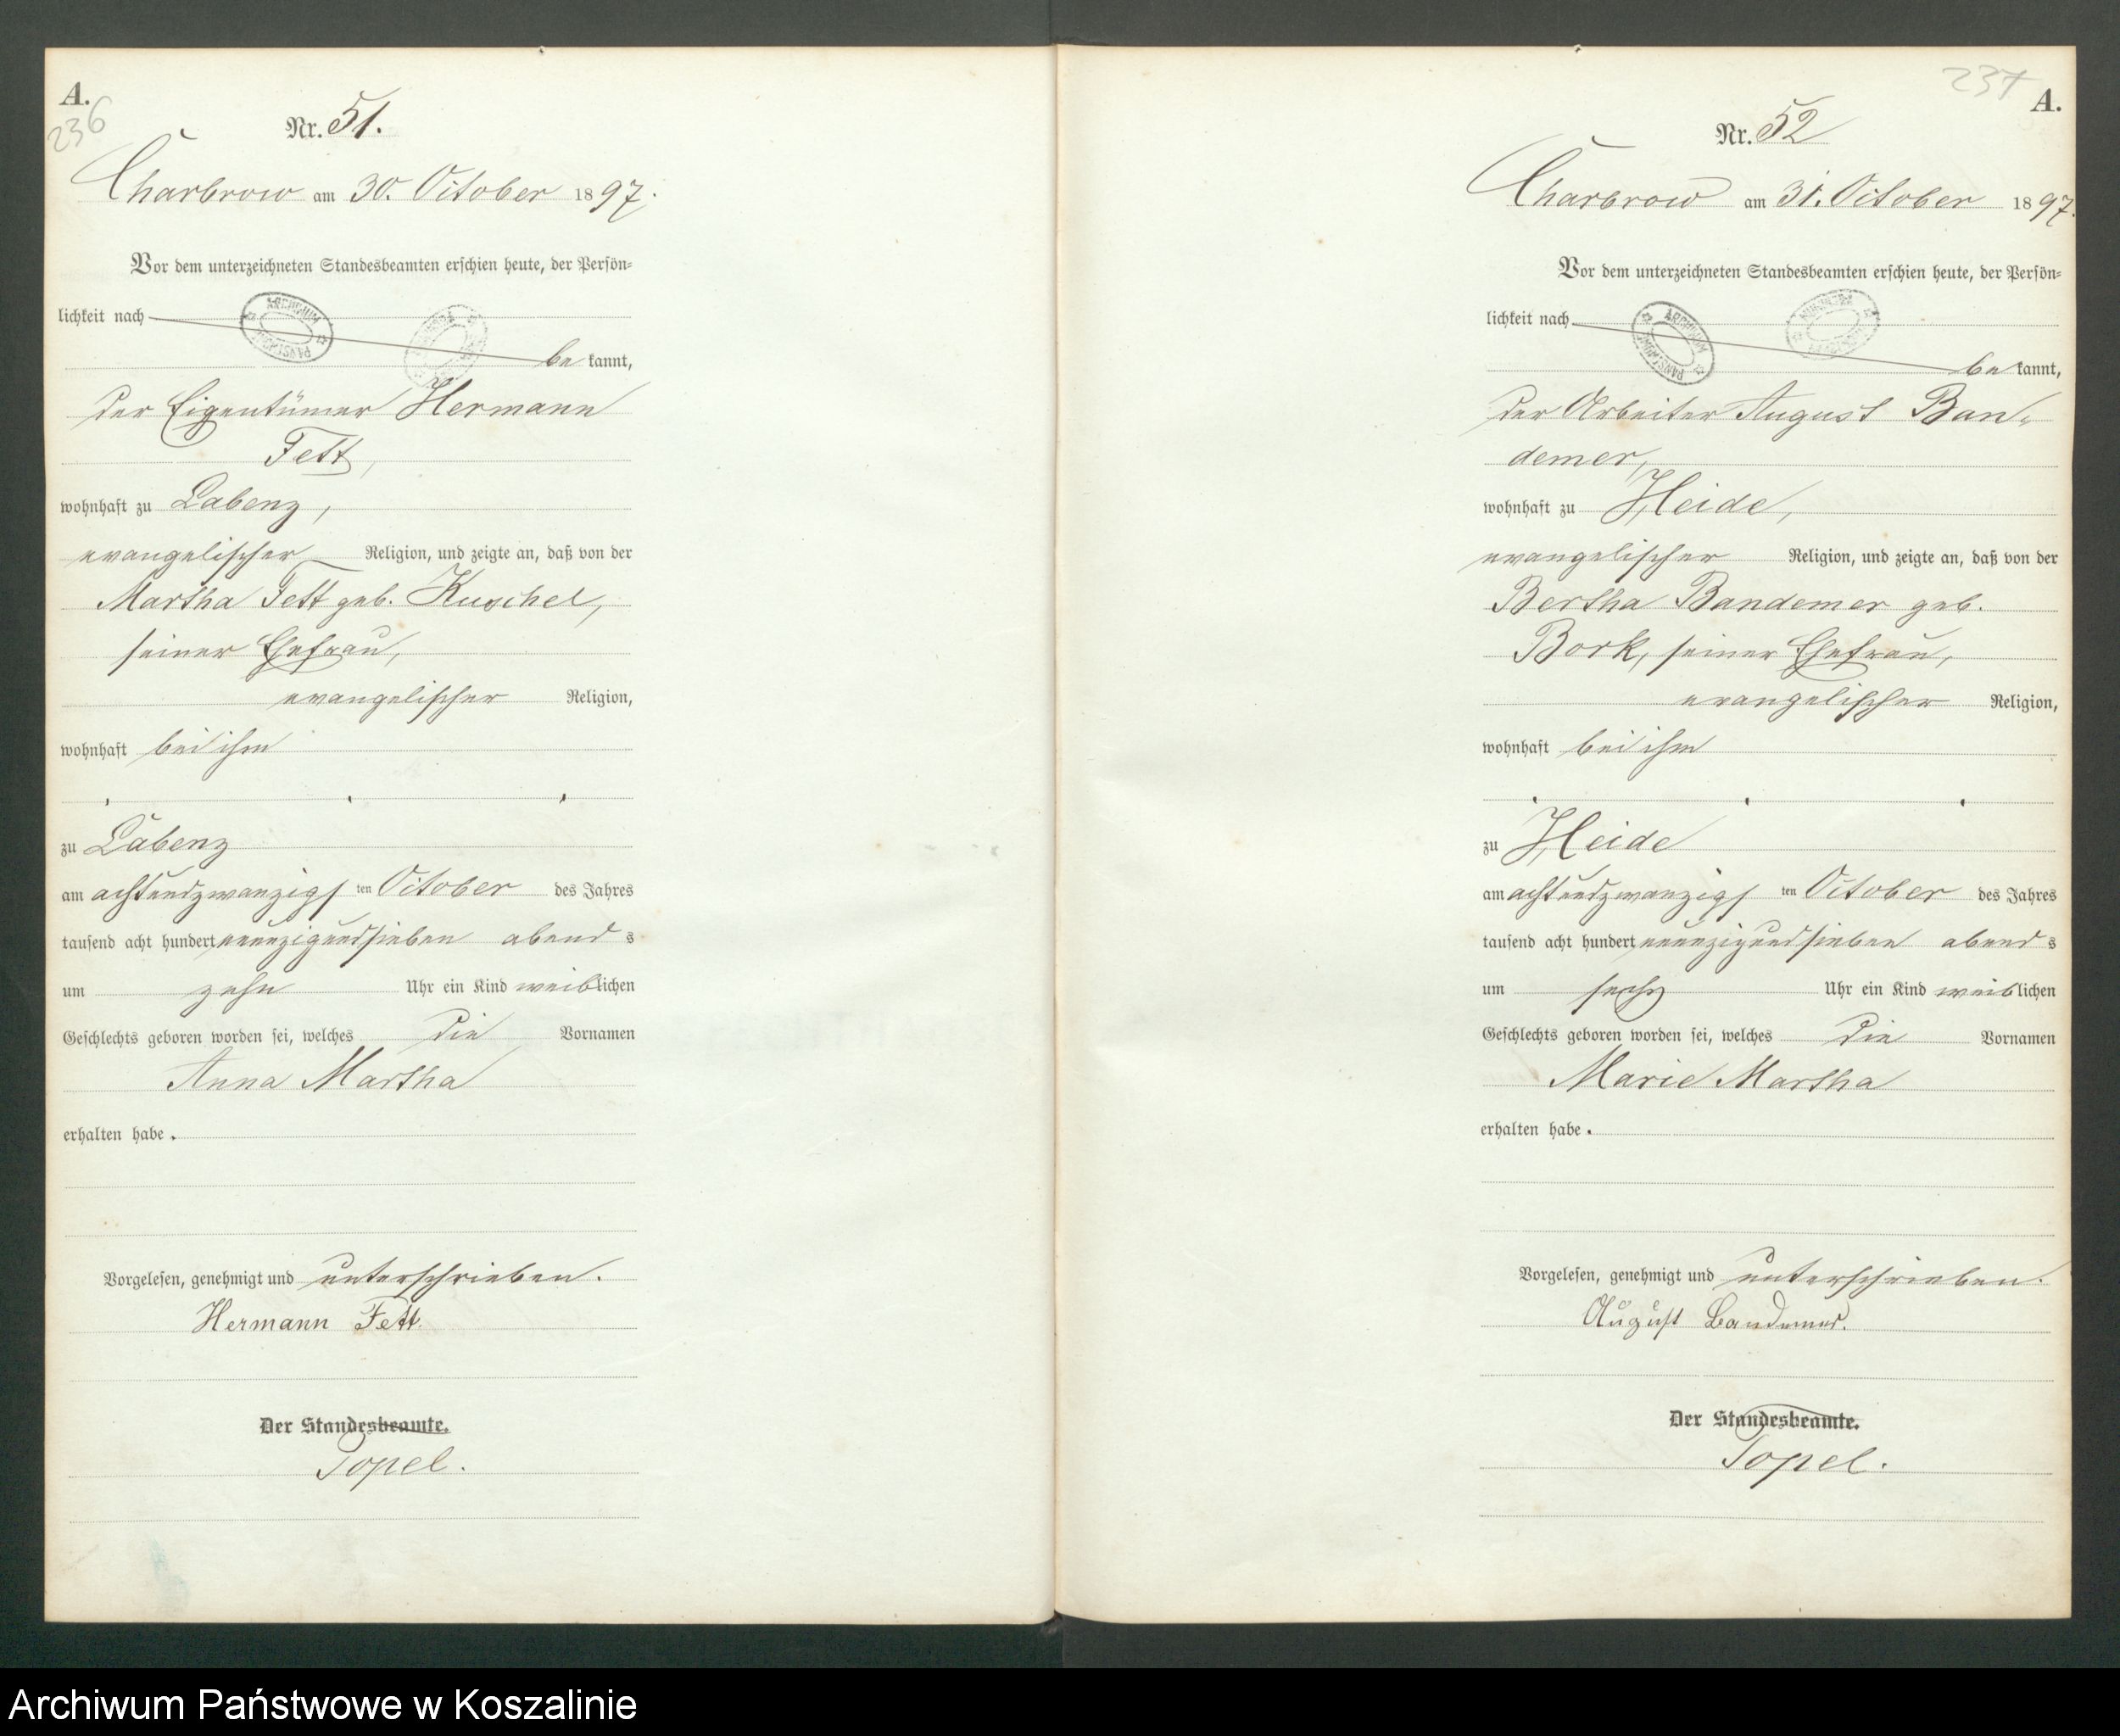 A.
236
Nr. 51.
Charbrow am 30. October 1897.
Vor dem unterzeichneten Standesbeamten erschien heute, der Persön-
lichkeit nach
ARCHIWUM
PAŃSTWOWE
be kannt,
der Eigentümer Hermann
Fett,
wohnhaft zu Labenz,
evangelischer Religion, und zeigte an, daß von der
Martha Fett geb. Kuschel,
seiner Ehefrau,
evangelischer Religion,
wohnhaft bei ihm
zu Labenz
am achtundzwanzigsten October des Jahres
tausend acht hundert neunzigundsieben abends
um zehn Uhr ein Kind weiblichen
Geschlechts geboren worden sei, welches die Vornamen
Anna Martha
erhalten habe.
Vorgelesen, genehmigt und unterschrieben.
Hermann Fett.
Der Standesbeamte.
Topel.
237
A.
Nr. 52
Charbrow am 31. October 1897.
Vor dem unterzeichneten Standesbeamten erschien heute, der Persön-
lichkeit nach
ARCHIWUM
PAŃSTWOWE
be kannt,
der Arbeiter August Ban-
demer,
wohnhaft zu Heide,
evangelischer Religion, und zeigte an, daß von der
Bertha Bandemer geb.
Bork, seiner Ehefrau,
evangelischer Religion,
wohnhaft bei ihm
zu Heide
am achtundzwanzigsten October des Jahres
tausend acht hundert neunzigundsieben abends
um sechs Uhr ein Kind weiblichen
Geschlechts geboren worden sei, welches die Vornamen
Marie Martha
erhalten habe.
Vorgelesen, genehmigt und unterschrieben.
August Bandemer.
Der Standesbeamte.
Topel.
Archiwum Państwowe w Koszalinie